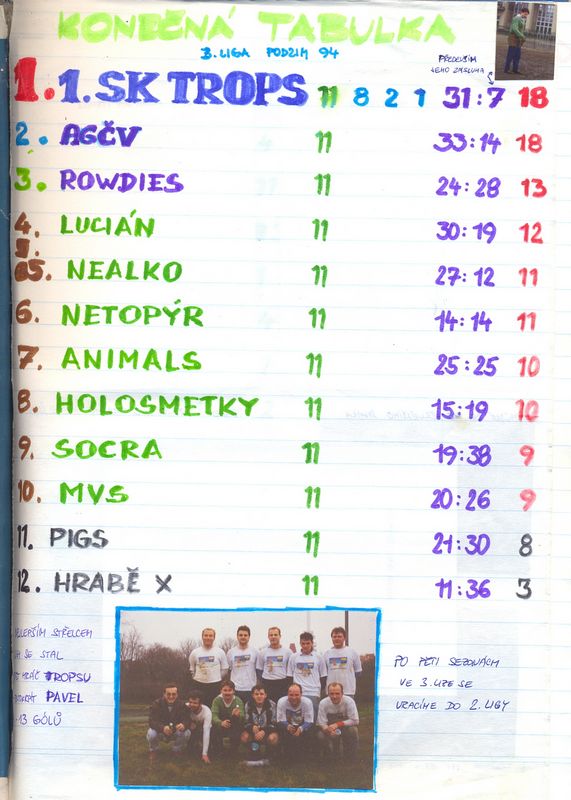 KONEČNÁ TABULKA
3. LIGA PODZIM 94
PŘEDEVŠÍM
JEHO ZÁSLUHA
1. 1. SK TROPS 11 8 2 1 31:7 18
2. AGČV 11 33:14 18
3. ROWDIES 11 24:28 13
4. LUCIÁN 11 30:19 12
5. NEALKO 11 27:12 11
6. NETOPÝR 11 14:14 11
7. ANIMALS 11 25:25 10
8. HOLOSMETKY 11 15:19 10
9. SOCRA 11 19:38 9
10. MVS 11 20:26 9
11. PIGS 11 21:30 8
12. HRABĚ X 11 11:36 3
STŘELCEM
SE STAL
TROPSU
PAVEL
13 GÓLŮ
PO PĚTI SEZONÁCH
VE 3. LIZE SE
VRACÍME DO 2. LIGY